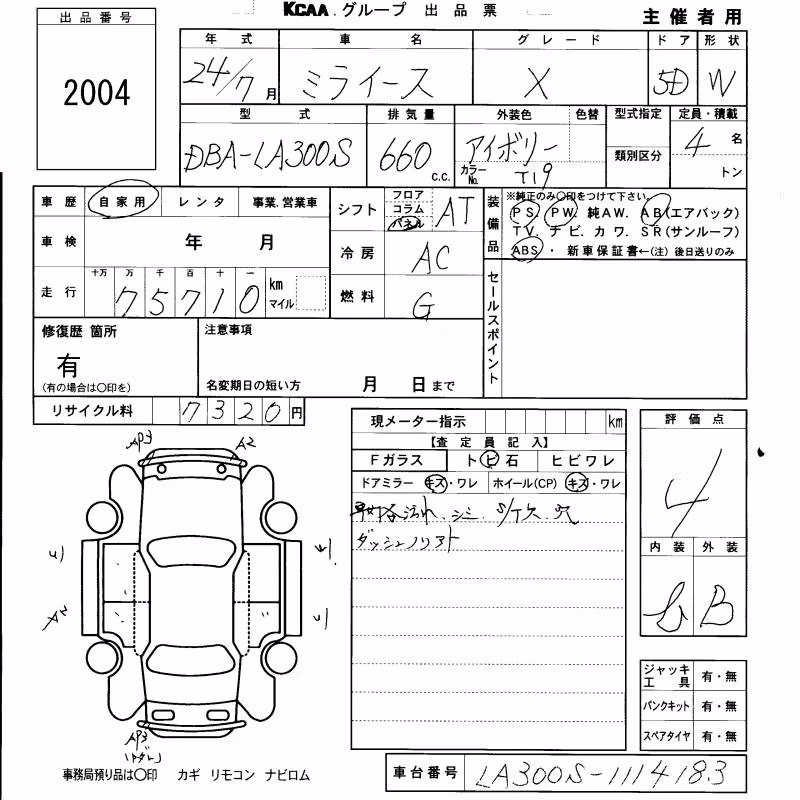 出品番号
2004
KCAA.グループ 出品票
主催者用
年式 車名 グレード ドア 形状
24/7月 ミライース X 5D W
型式 排気量 外装色 色替 型式指定 定員・積載
DBA-LA300S 660 c.c. アイボリー カラーNo. T19 類別区分 4 名 トン
車歴 自家用 レンタ 事業.営業車
車検 年 月
走行 十万 万 千 百 十 一 km マイル
75710
シフト フロア コラム パネル AT
冷房 AC
燃料 G
装備品
※純正のみ〇印をつけて下さい。
PS. PW. 純AW. AB(エアバック)
TV. ナビ. カワ. SR(サンルーフ)
ABS ・ 新車保証書←(注) 後日送りのみ
セールスポイント
修復歴 箇所
有
(有の場合は〇印を)
注意事項
名変期日の短い方 月 日まで
リサイクル料 7320円
現メーター指示 km
【査定員記入】
Fガラス トビ石 ヒビワレ
ドアミラー キズ・ワレ ホイール(CP) キズ・ワレ
汚れ、シミ
評価点
4
内装 外装
B
AP3 A2
A2
AP3
ジャッキ工具 有・無
パンクキット 有・無
スペアタイヤ 有・無
事務局預り品は〇印 カギ リモコン ナビロム
車台番号 LA300S-1114183